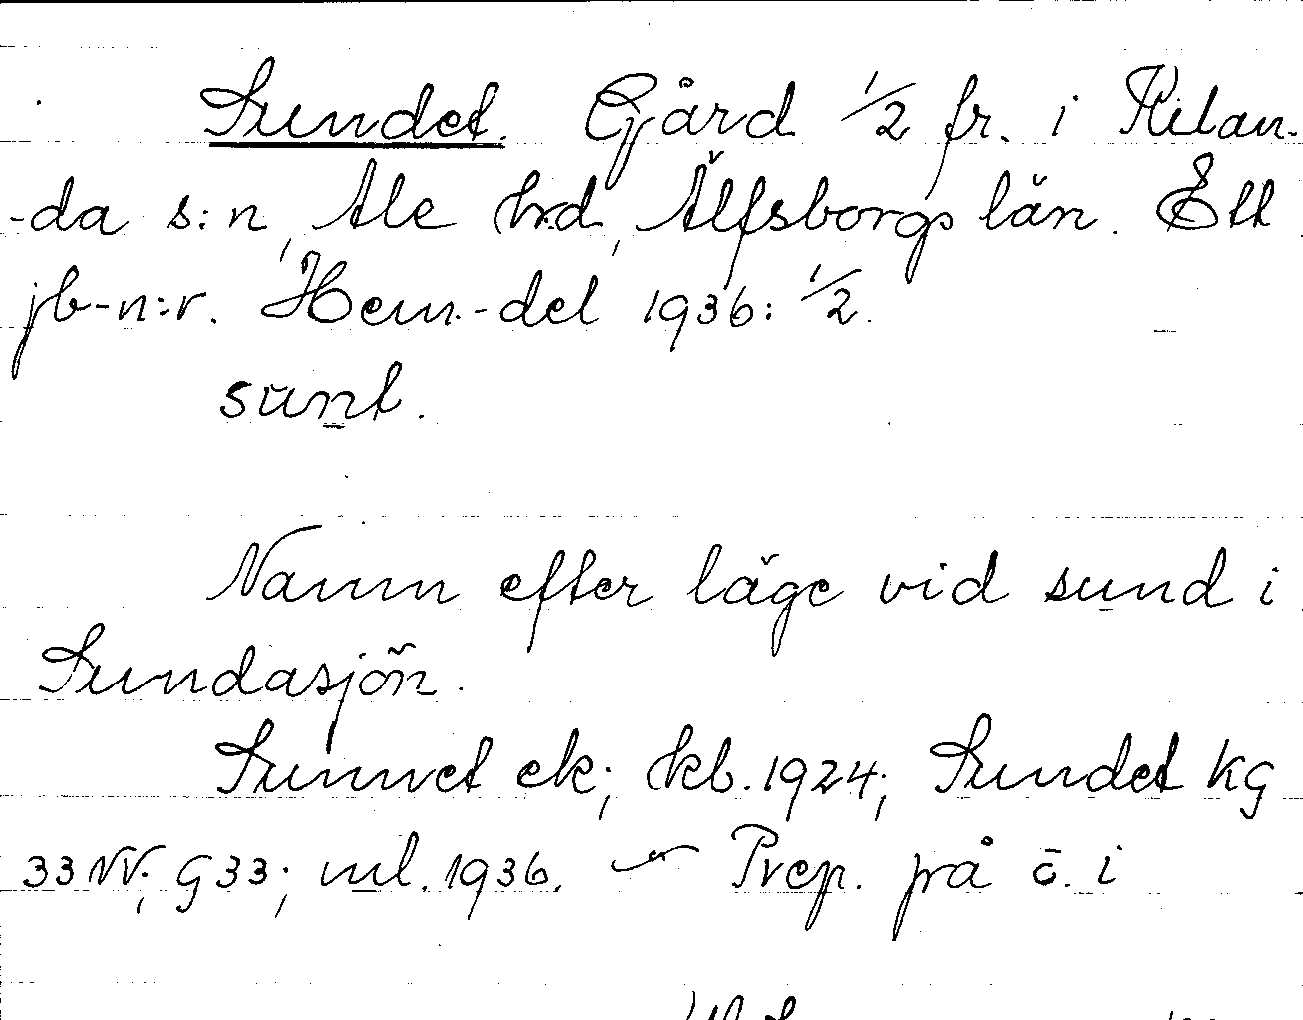 Sundet. Gård 1/2 fr. i Kilan-
-da s:n, Ale hrd, Älfsborgs län. Ett
jb-n:r. Hem.-del 1936: 1/2.
sun̲t.
Namn efter läge vid sund i
Sundasjön.
Sunnet ek; kb. 1924; Sundet kg
33 NV; G 33; ml. 1936. — Prep. på c̄. i